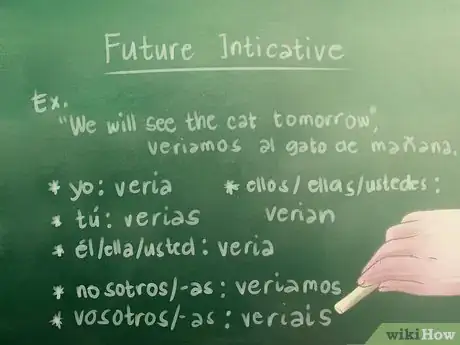 Future Inticative
Ex.
"We will see the cat tomorrow",
veriamos al gato de mañana.
* yo: veria
* tú: verias
* él/ella/usted: veria
* nosotros/-as: veriamos
* vosotros/-as: veriais
* ellos/ellas/ustedes:
verian
wikiHow